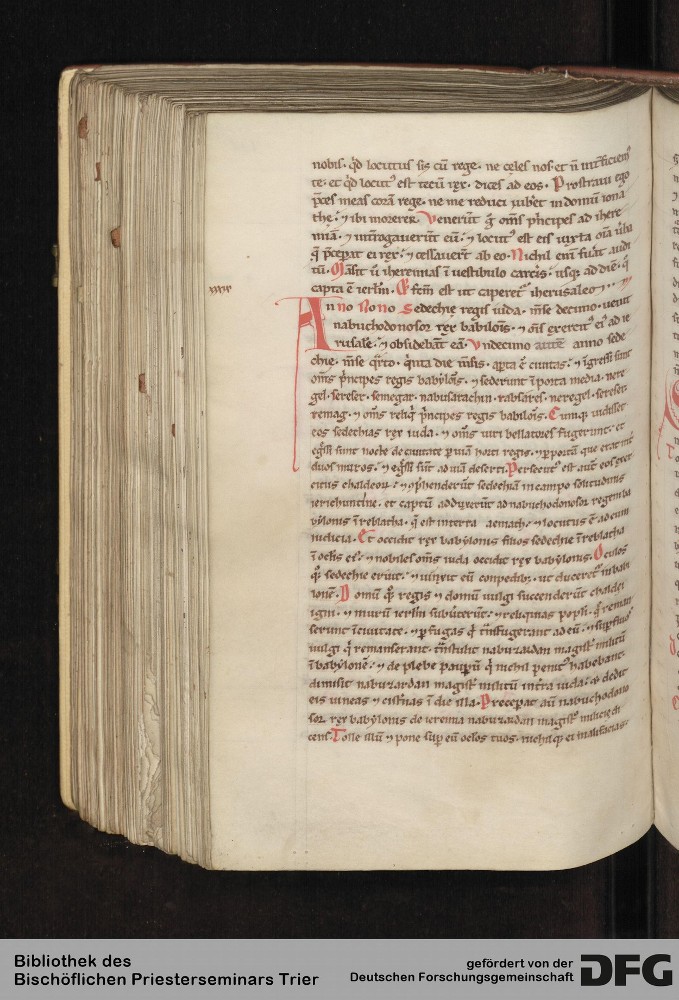 nobis. qd locutus sis cū rege. ne celes nos et n̄ int̄ficiemꝰ
te. et qd locutꝰ est tecū rex. dices ad eos. Prostravi ego
p̄ces meas corā rege. ne me reduci iub&et in domū iona
the. ⁊ ibi morerer. Venerūt g̊ om̄s p̄ncipes ad ihere
miā. ⁊ int̄rogaverūt eū. ⁊ locutꝰ est eis iuxta oīa v̄ba
q̄ p̄cep̄at ei rex. ⁊ cessaver̄t ab eo. Nichil enī fuāt audi
tū. Māsit v̄ iheremias ī vestibulo carcīs. usq; ad diē. q̄
capta ē ierlm̄. Et fc̄m est ut caperet᷒ iherusalē
xxxix
Anno Nono Sedechie regis iuda. m̄se decimo. venit
nabuchodonosor rex babilonis. ⁊ om̄s exercitꝰ eiꝰ ad ie
rusalē. ⁊ obsidebāt eā. Undecimo autē anno sede
chie. m̄se q̄rto. q̄nta die m̄sis. ap̄ta ē civitas. ⁊ īgressi sunt
om̄s p̄ncipes regis babylōis. ⁊ sederunt ī porta media. nere
gel. sereser. semegar. nabusarachin. rabsares. neregel. sereser.
remag. ⁊ om̄s reliq̄ p̄ncipes regis babilōis. Cumq; vidisset
eos sedechias rex iuda. ⁊ om̄s viri bellatores fugerunt. et
eḡssi sunt nocte de civitate p̄ viā horti regis. ⁊ p̄ portā que erat int̄
duos muros. ⁊ eḡssi sūt ad viā deserti. Persecutꝰ est aūt eos exer
citus chaldeoꝝ. ⁊ cōp̄henderūt sedechiā in campo solitudinis
ierichuntine. et captū adduxerūt ad nabuchodonosor regem ba
bylonis ī reblatha. q̄ est in terra aemath. ⁊ locutus ē ad eum
iudicia. Et occidit rex babylonis filios sedechie ī reblatha
ī oclīs eiꝰ. ⁊ nobiles om̄s iuda occidit rex babylonis. Oculos
q̄ꝫ sedechie eruit. ⁊ vinxit eū conpedibꝫ. ut duceret᷒ in babi
lonē. Domū q̄ꝫ regis ⁊ domū vulgi succenderūt chaldei
igni. ⁊ murū ierlm̄ subv̄terūt. ⁊ reliquias popl̄i. q̄ reman
serunt ī civitate. ⁊ p̄fugas q̄ tn̄sfugerant ad eū. ⁊ sup̄fluos
vulgi q̄ remanserant. tn̄stulit nabuzardan magist᷒ militū
ī babylonē. ⁊ de plebe paup̄rū q̄ nichil penitꝰ habebant.
dimisit nabuzardan magist᷒ militū in t̄ra iuda. ⁊ dedit
eis vineas ⁊ cist̄nas ī die illa. Precep̄at aū nabuchodono
sor rex babylonis de ieremia nabuzardan magist᷒ milicie di
cens. Tolle illū ⁊ pone sup̄ eū oclōs tuos. nichilq; ei mali facias.
Bibliothek des
Bischöflichen Priesterseminars Trier
gefördert von der
Deutschen Forschungsgemeinschaft
DFG